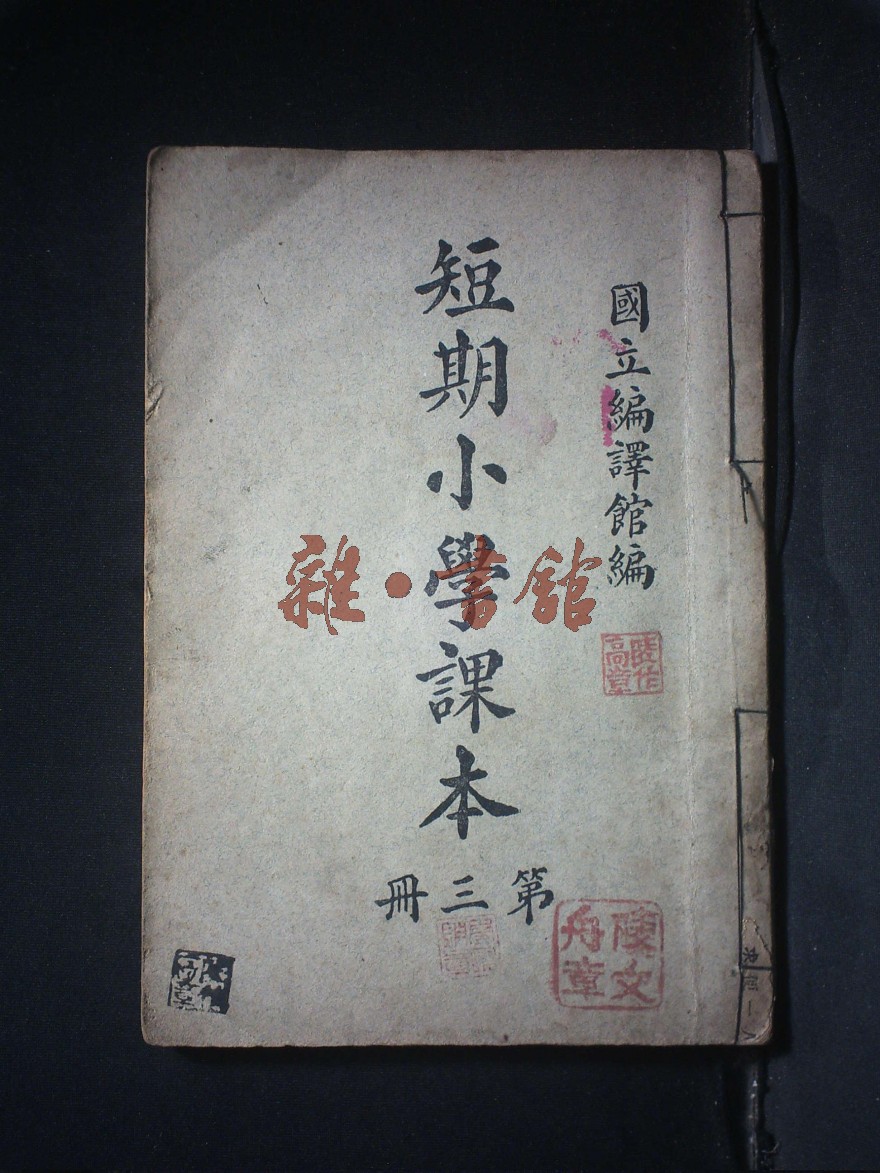 國立編譯館編
短期小學課本
第三冊
雜·書館
陳文舟章